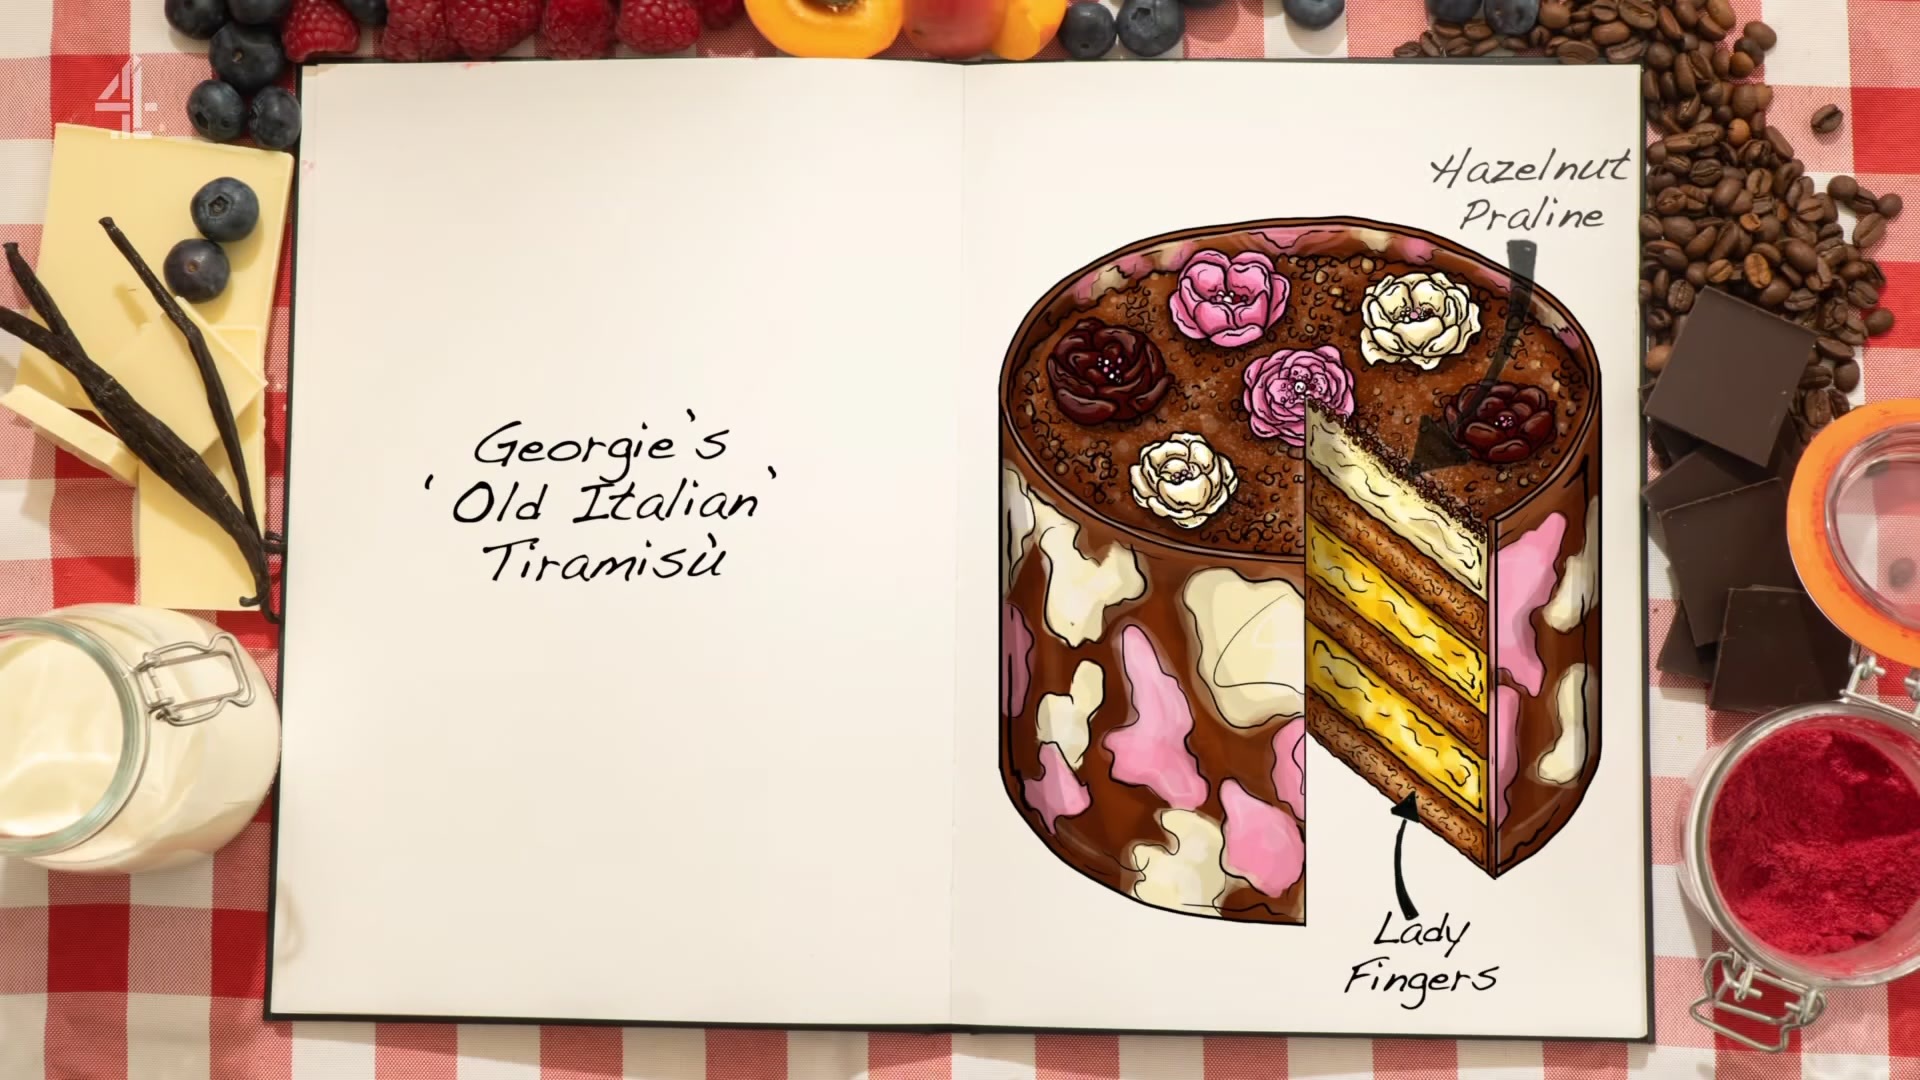 4
Georgie's
'Old Italian'
Tiramisù
Hazelnut
Praline
Lady
Fingers